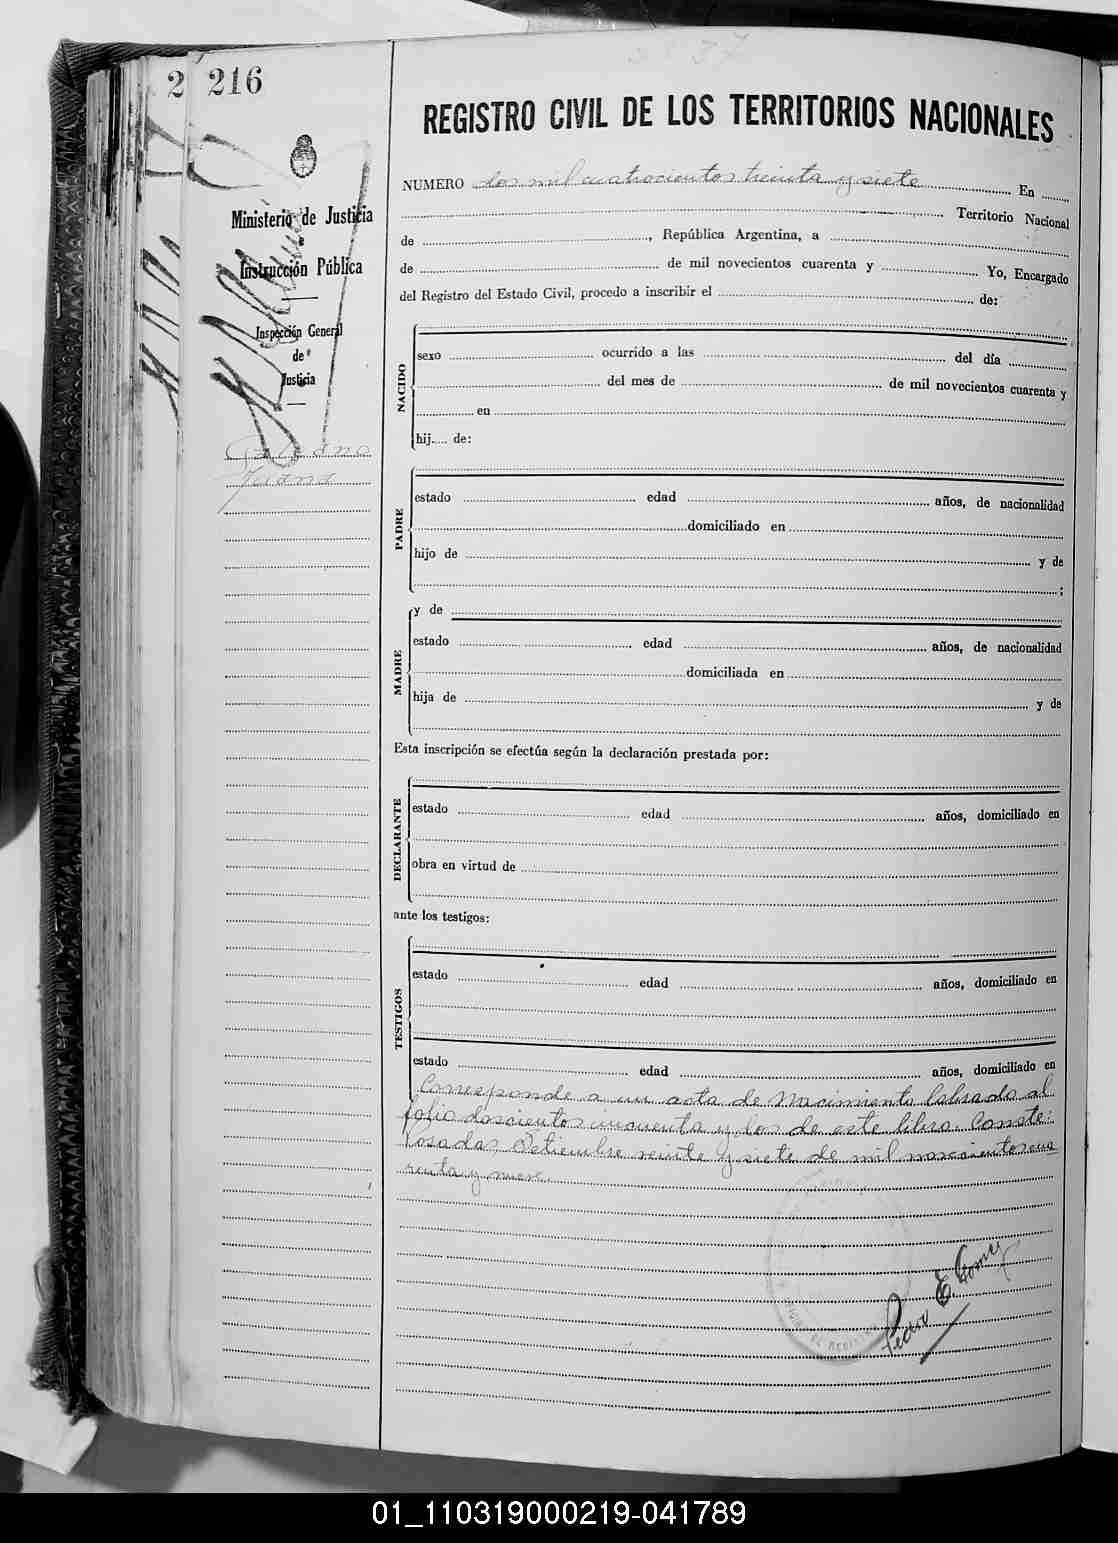 2437
2 216
REGISTRO CIVIL DE LOS TERRITORIOS NACIONALES
Ministerio de Justicia
e
Instrucción Pública
Inspección General
de
Justicia
Galeano
Juana
NUMERO dos mil cuatrocientos treinta y siete En
Territorio Nacional
de , República Argentina, a
de de mil novecientos cuarenta y Yo, Encargado
del Registro del Estado Civil, procedo a inscribir el de:
NACIDO
sexo ocurrido a las del día
del mes de de mil novecientos cuarenta y
en
hij.... de:
PADRE
estado edad años, de nacionalidad
domiciliado en
hijo de y de
;
MADRE
y de
estado edad años, de nacionalidad
domiciliada en
hija de y de
Esta inscripción se efectúa según la declaración prestada por:
DECLARANTE
estado edad años, domiciliado en
obra en virtud de
ante los testigos:
TESTIGOS
estado edad años, domiciliado en
estado edad años, domiciliado en
Corresponde a un acta de Nacimiento labrado al
folio doscientos cincuenta y dos de este libro. Conste:
Posadas, Setiembre veinte y siete de mil novecientos cua
renta y nueve.
Pedro E. Gomez
01_110319000219-041789